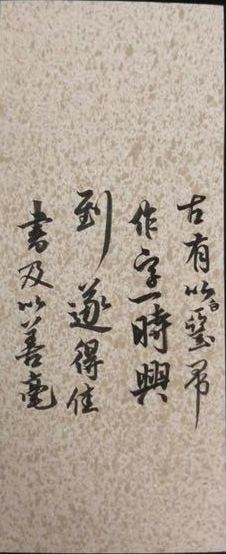 古有以白堊帚
作字一時興
到遂得佳
書及以善毫